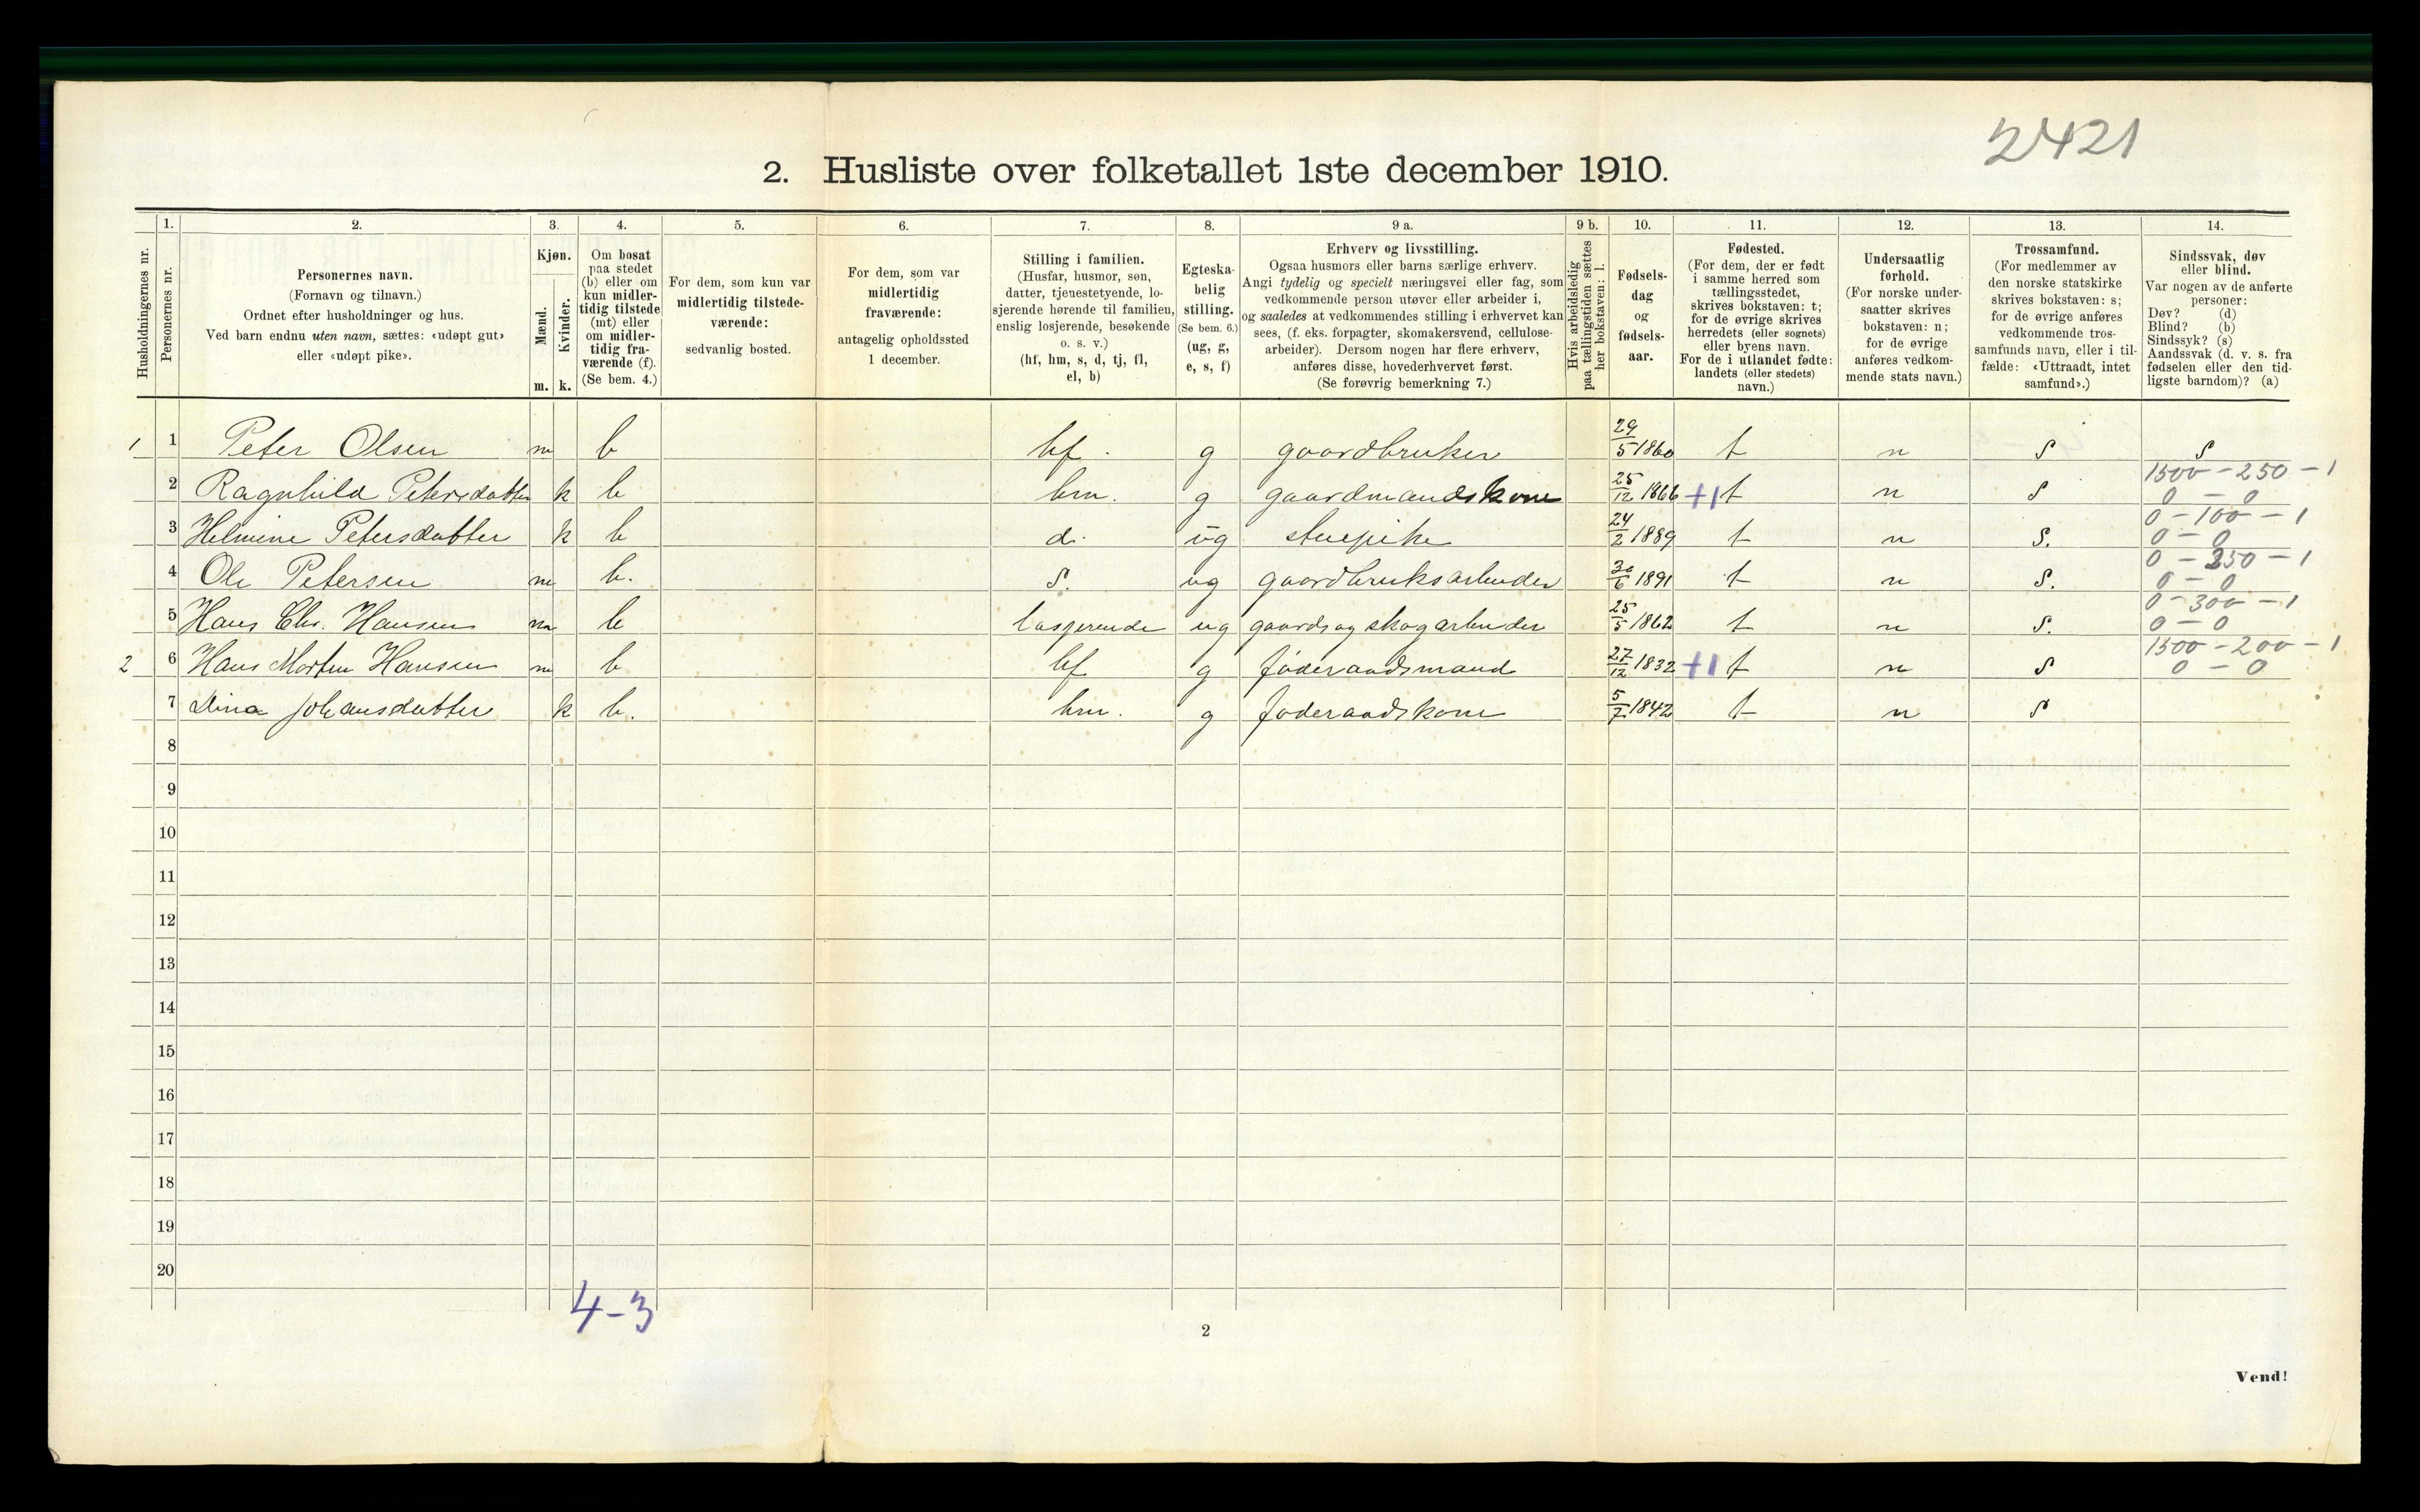 2421
2. Husliste over folketallet 1ste december 1910.
Husholdningernes nr.
1.
Personernes nr.
2.
Personernes navn.
(Fornavn og tilnavn.)
Ordnet efter husholdninger og hus.
Ved barn endnu uten navn, sættes: «udøpt gut»
eller «udøpt pike».
3.
Kjøn.
Mænd.
Kvinder.
m. k.
4.
Om bosat
paa stedet
(b) eller om
kun midler-
tidig tilstede
(mt) eller
om midler-
tidig fra-
værende (f).
(Se bem. 4.)
5.
For dem, som kun var
midlertidig tilstede-
værende:
sedvanlig bosted.
6.
For dem, som var
midlertidig
fraværende:
antagelig opholdssted
1 december.
7.
Stilling i familien.
(Husfar, husmor, søn,
datter, tjenestetyende, lo-
sjerende hørende til familien,
enslig losjerende, besøkende
o. s. v.)
(hf, hm, s, d, tj, fl,
el, b)
8.
Egteska-
belig
stilling.
(Se bem. 6.)
(ug, g,
e, s, f)
9 a.
Erhverv og livsstilling.
Ogsaa husmors eller barns særlige erhverv.
Angi tydelig og specielt næringsvei eller fag, som
vedkommende person utøver eller arbeider i,
og saaledes at vedkommendes stilling i erhvervet kan
sees, (f. eks. forpagter, skomakersvend, cellulose-
arbeider). Dersom nogen har flere erhverv,
anføres disse, hovederhvervet først.
(Se forøvrig bemerkning 7.)
9 b.
Hvis arbeidsledig
paa tællingstiden sættes
her bokstaven: l.
10.
Fødsels-
dag
og
fødsels-
aar.
11.
Fødested.
(For dem, der er født
i samme herred som
tællingsstedet,
skrives bokstaven: t;
for de øvrige skrives
herredets (eller sognets)
eller byens navn.
For de i utlandet fødte:
landets (eller stedets)
navn.)
12.
Undersaatlig
forhold.
(For norske under-
saatter skrives
bokstaven: n;
for de øvrige
anføres vedkom-
mende stats navn.)
13.
Trossamfund.
(For medlemmer av
den norske statskirke
skrives bokstaven: s;
for de øvrige anføres
vedkommende tros-
samfunds navn, eller i til-
fælde: «Uttraadt, intet
samfund».)
14.
Sindssvak, døv
eller blind.
Var nogen av de anførte
personer:
Døv? (d)
Blind? (b)
Sindssyk? (s)
Aandssvak (d. v. s. fra
fødselen eller den tid-
ligste barndom)? (a)
1 1 Peter Olsen m b hf. g gaardbruker 29/5 1860 t n S S
1500 - 250 - 1
2 Ragnhild Petersdatter k b hm. g gaardmandskone 25/12 1866 +1 t n S 0 - 0
0 - 100 - 1
3 Helmine Petersdatter k b d. ug stuepike 24/2 1889 t n S. 0 - 0
0 - 350 - 1
4 Ole Petersen m b. S. ug gaardbruksarbeider 30/6 1891 t n S. 0 - 0
0 - 300 - 1
5 Hans Chr. Hansen m b losjerende ug gaards og skogarbeider 25/5 1862 t n S. 0 - 0
1500 - 200 - 1
2 6 Hans Morten Hansen m b hf g føderaadsmand 27/12 1832 +1 t n S 0 - 0
7 Dina Johansdatter k b. hm. g føderaadskone 5/7 1842 t n S
8
9
10
11
12
13
14
15
16
17
18
19
20
4-3
2
Vend!